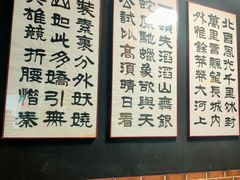 北國風光千里冰封
萬里雪飄望長城內
外惟餘莽莽大河上
下頓失滔滔山舞銀
蛇原馳蠟象欲與天
公試比高須晴日看
裝素裹分外妖嬈
如此多嬌引無
英雄競折腰惜秦